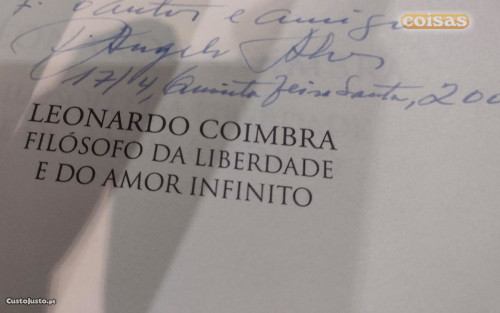 coisas
e amigo
Angelo Alves
17/4, Quinta feira Santa, 200
LEONARDO COIMBRA
FILÓSOFO DA LIBERDADE
E DO AMOR INFINITO
CustoJusto.pt